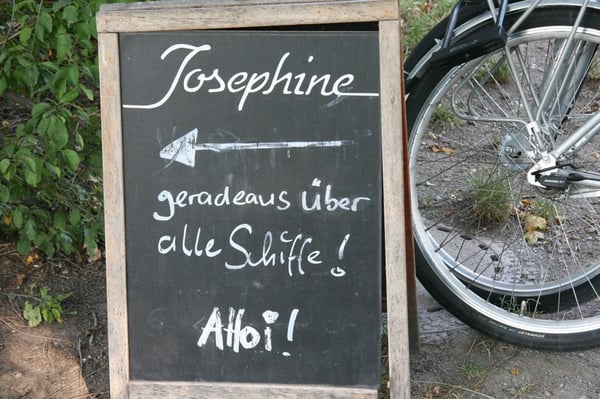 Josephine
geradeaus über
alle Schiffe!
Ahoi!